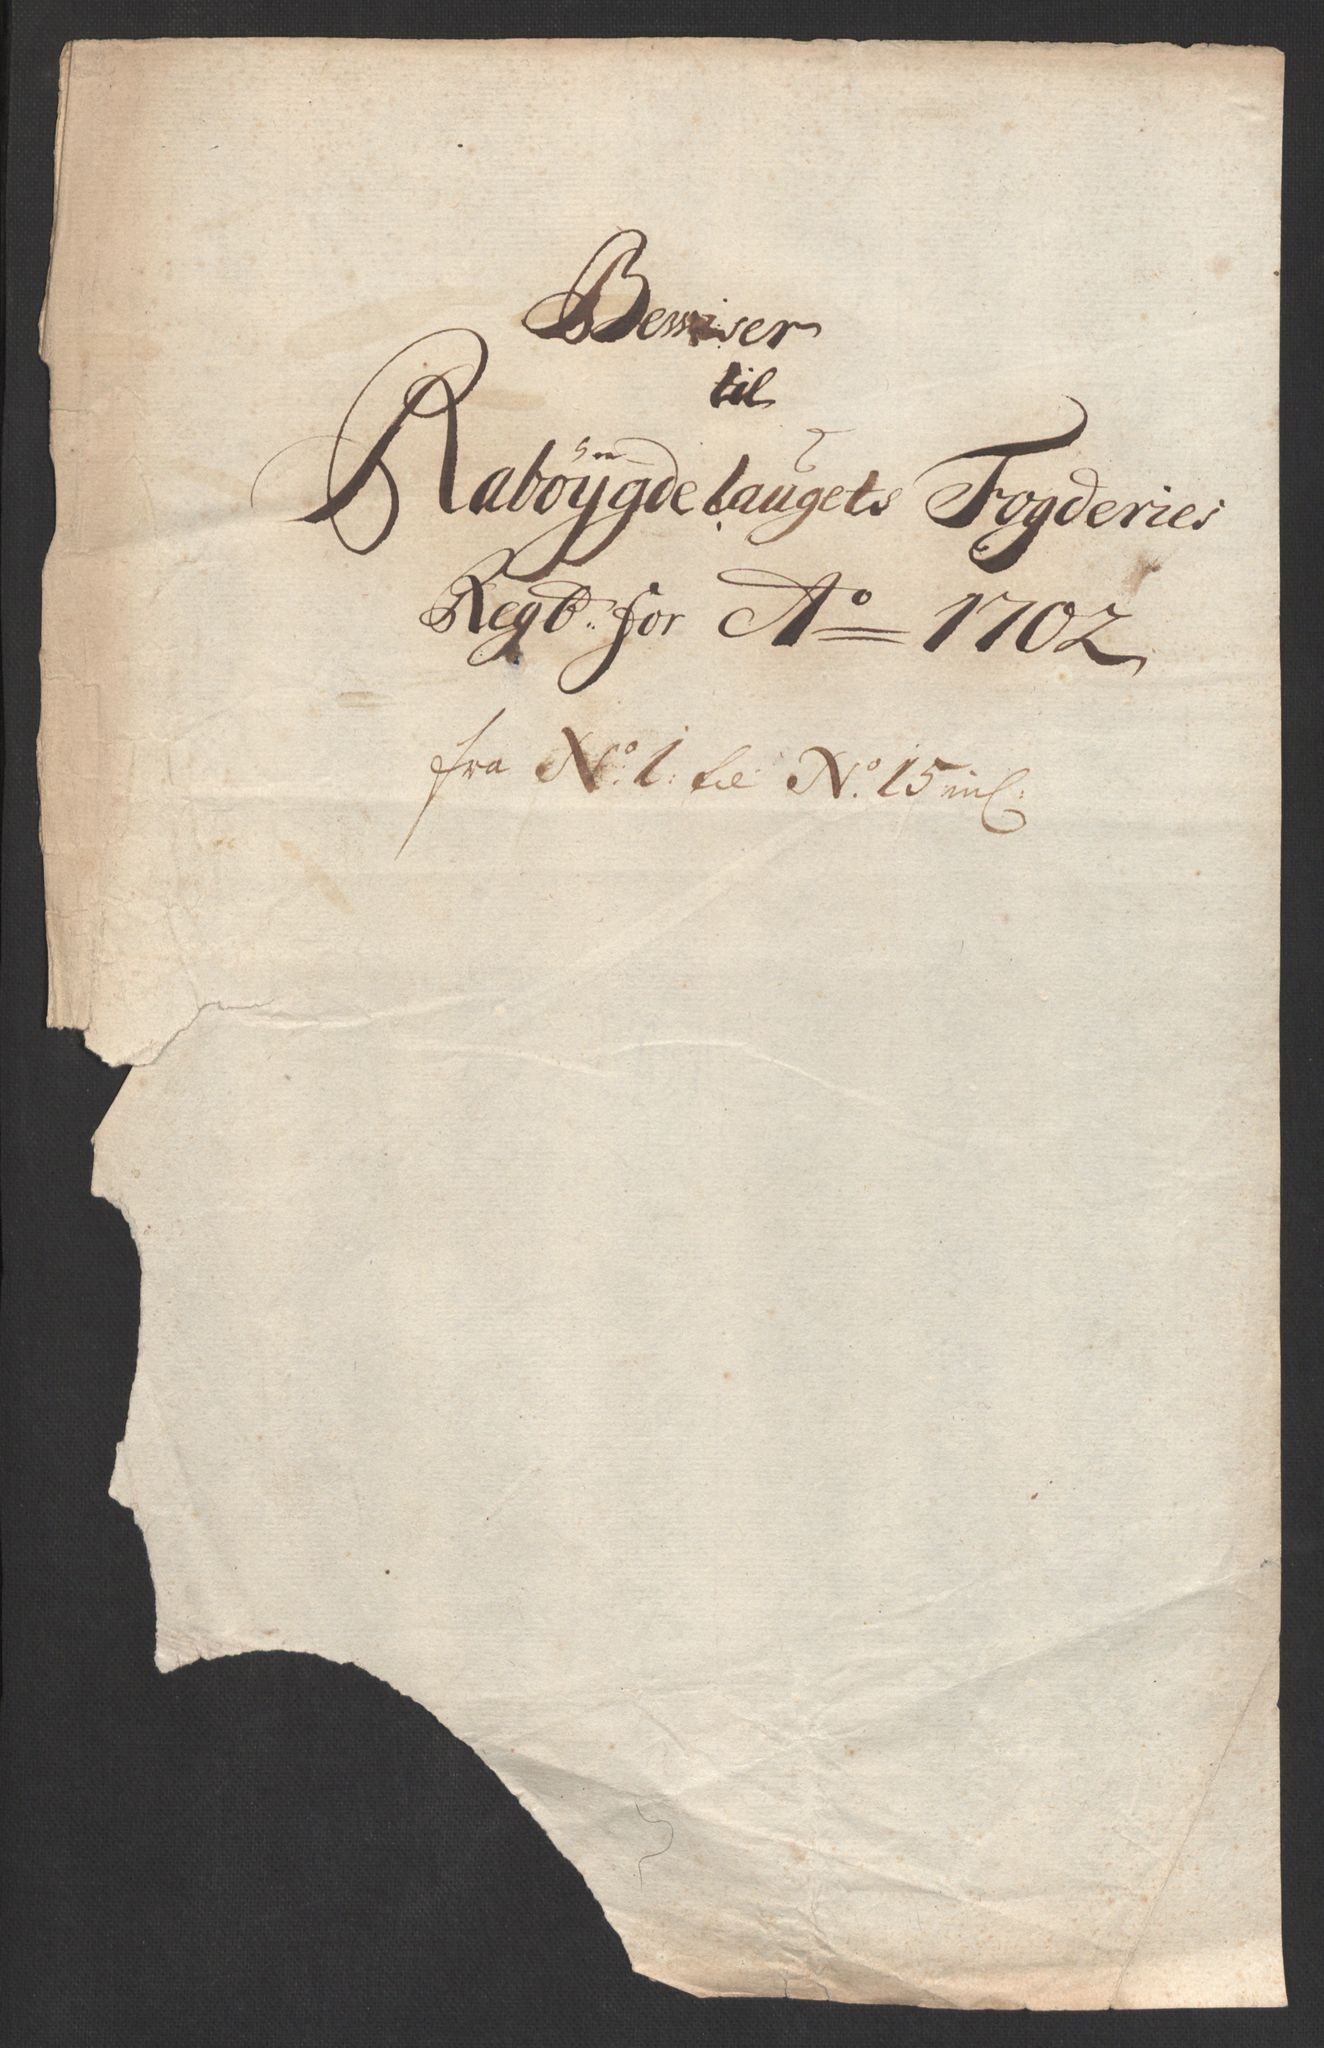 Bewiser
til
Raböÿgdelaugets Fogderies
Regb: for Ao 1702
fra No: 1: til No: 15 incl: